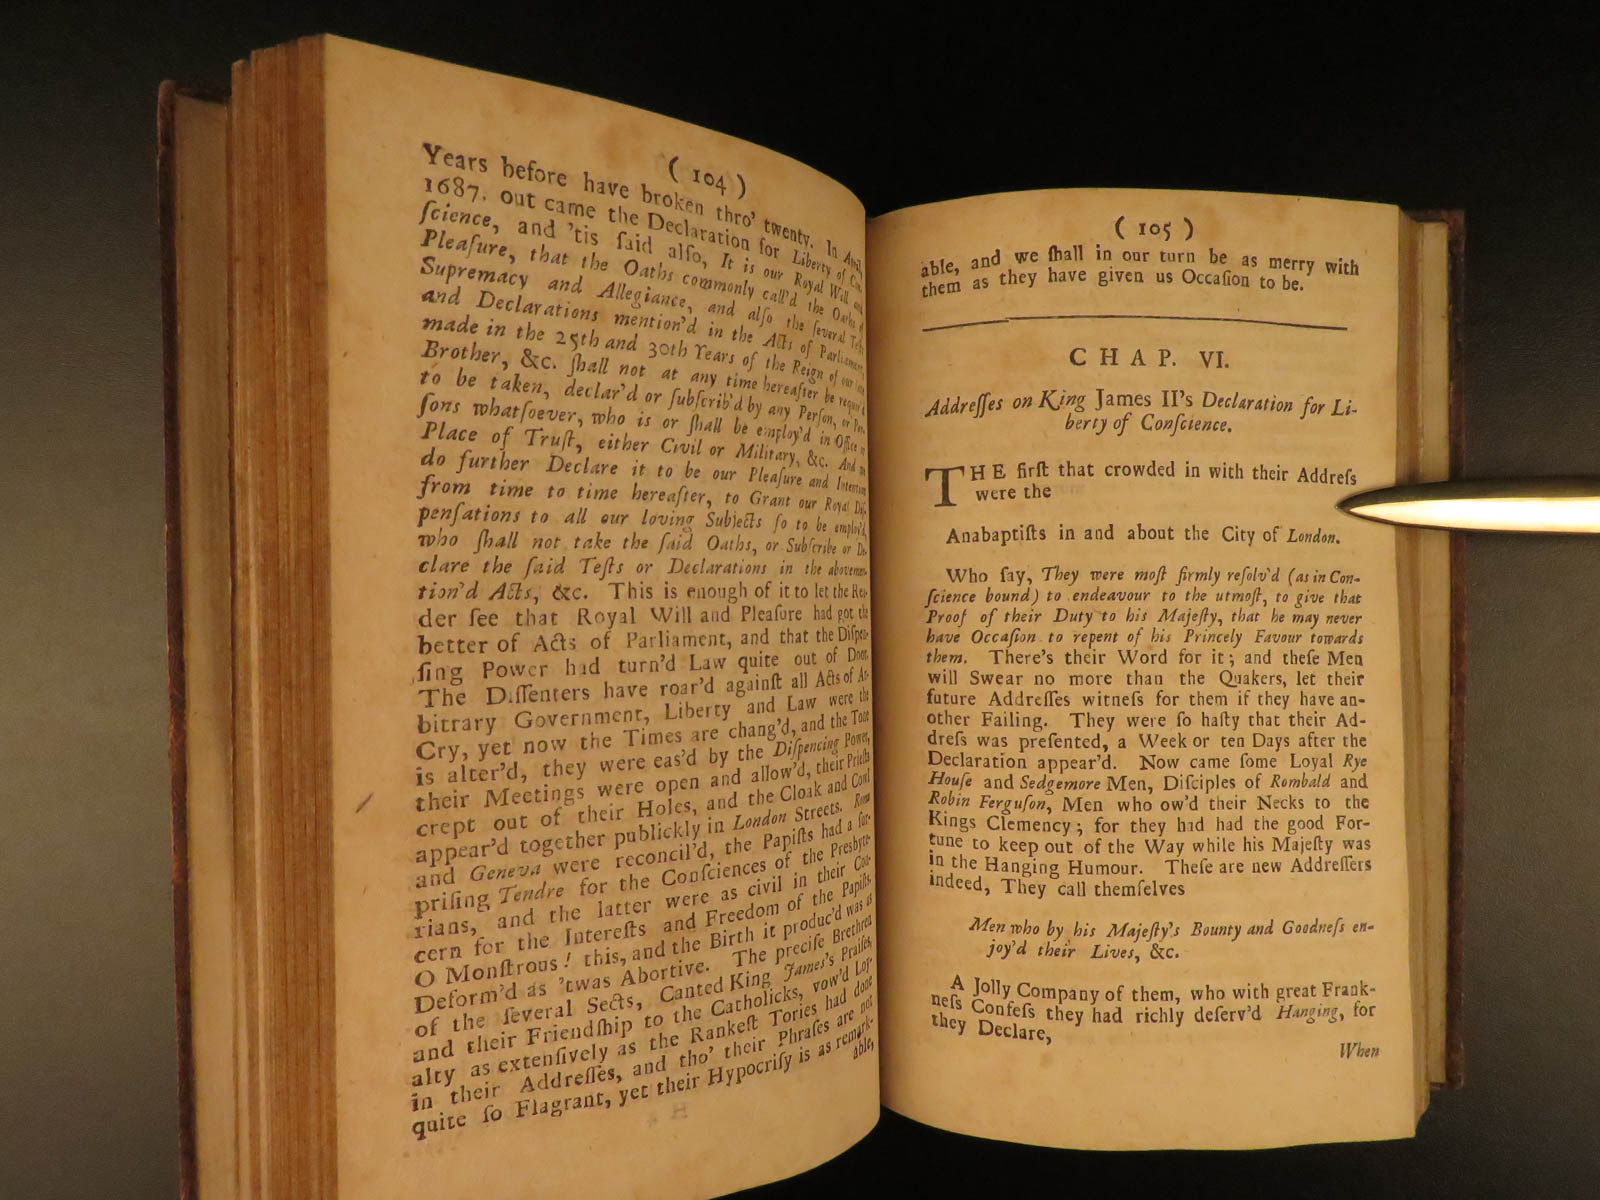 ( 104 )
Years before have broken thro' twenty. In April,
1687. out came the Declaration for Liberty of Con-
ſcience, and 'tis ſaid alſo, It is our Royal Will and
Pleaſure, that the Oaths commonly call'd the Oaths of
Supremacy and Allegiance, and alſo the ſeveral Teſts
and Declarations mention'd in the Acts of Parliament,
made in the 25th and 30th Years of the Reign of our late
Brother, &c. ſhall not at any time hereafter be requir'd
to be taken, declar'd or ſubſcrib'd by any Perſon, or Per-
ſons whatſoever, who is or ſhall be employ'd in Office or
Place of Truſt, either Civil or Military, &c. And we
do further Declare it to be our Pleaſure and Intention
from time to time hereafter, to Grant our Royal Diſ-
penſations to all our loving Subjects ſo to be employ'd,
who ſhall not take the ſaid Oaths, or Subſcribe or De-
clare the ſaid Teſts or Declarations in the abovemen-
tion'd Acts, &c. This is enough of it to let the Rea-
der ſee that Royal Will and Pleaſure had got the
better of Acts of Parliament, and that the Diſpen-
ſing Power had turn'd Law quite out of Door.
The Diſſenters have roar'd againſt all Acts of Ar-
bitrary Government, Liberty and Law were the
Cry, yet now the Times are chang'd, and the Tone
is alter'd, they were eas'd by the Diſpencing Power,
their Meetings were open and allow'd, their Prieſts
crept out of their Holes, and the Cloak and Cowl
appear'd together publickly in London Streets. Rome
and Geneva were reconcil'd, the Papiſts had a ſur-
priſing Tendre for the Conſciences of the Presbyte-
rians, and the latter were as civil in their Con-
cern for the Intereſts and Freedom of the Papiſts.
O Monſtrous! this, and the Birth it produc'd was as
Deform'd as 'twas Abortive. The preciſe Brethren
of the ſeveral Sects, Canted King James's Praiſes,
and their Friendſhip to the Catholicks, vow'd Loy-
alty as extenſively as the Rankeſt Tories had done
in their Addreſſes, and tho' their Phraſes are not
quite ſo Flagrant, yet their Hypocriſy is as remark-
able,
( 105 )
able, and we ſhall in our turn be as merry with
them as they have given us Occaſion to be.
CHAP. VI.
Addreſſes on King James II's Declaration for Li-
berty of Conſcience.
THE firſt that crowded in with their Addreſs
were the
Anabaptiſts in and about the City of London.
Who ſay, They were moſt firmly reſolv'd (as in Con-
ſcience bound) to endeavour to the utmoſt, to give that
Proof of their Duty to his Majeſty, that he may never
have Occaſion to repent of his Princely Favour towards
them. There's their Word for it; and theſe Men
will Swear no more than the Quakers, let their
future Addreſſes witneſs for them if they have an-
other Failing. They were ſo haſty that their Ad-
dreſs was preſented, a Week or ten Days after the
Declaration appear'd. Now came ſome Loyal Rye
Houſe and Sedgemore Men, Diſciples of Rombald and
Robin Ferguſon, Men who ow'd their Necks to the
Kings Clemency; for they had had the good For-
tune to keep out of the Way while his Majeſty was
in the Hanging Humour. Theſe are new Addreſſers
indeed, They call themſelves
Men who by his Majeſty's Bounty and Goodneſs en-
joy'd their Lives, &c.
A Jolly Company of them, who with great Frank-
neſs Confeſs they had richly deſerv'd Hanging, for
they Declare,
When